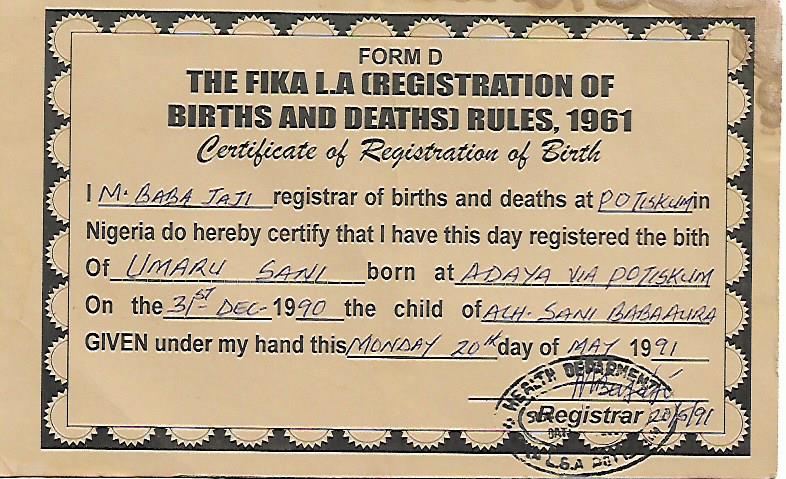 FORM D
THE FIKA L.A (REGISTRATION OF
BIRTHS AND DEATHS) RULES, 1961
Certificate of Registration of Birth
I M. BABA JAJI registrar of births and deaths at POTISKUM in
Nigeria do hereby certify that I have this day registered the bith
Of UMARU SANI born at ADAYA VIA POTISKUM
On the 31ST DEC- 1990 the child of ALH. SANI BABA AURA
GIVEN under my hand this MONDAY 20th day of MAY 1991
HEALTH DEPARMENT
Registrar 20/5/91